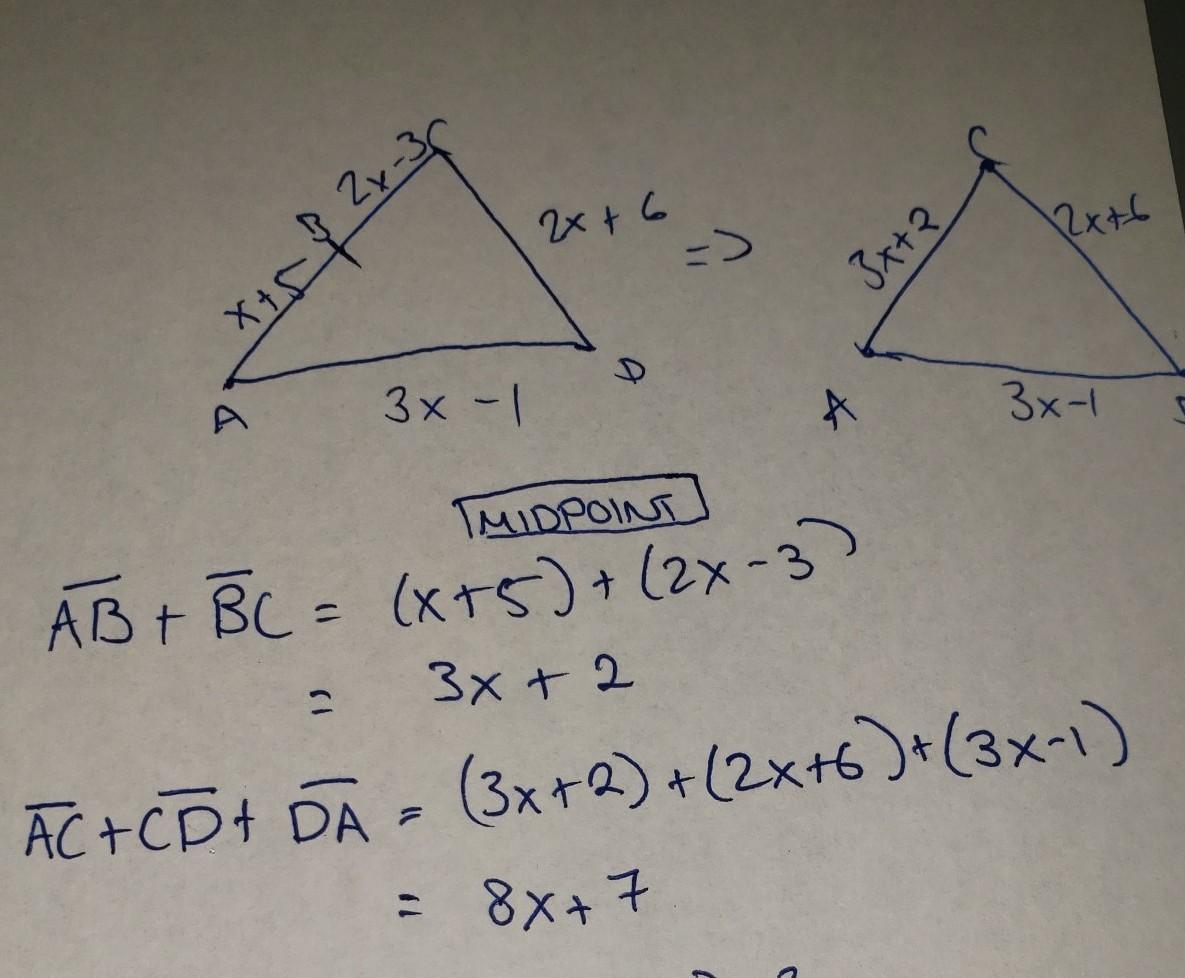 C
2x-3
B
x+5
2x + 6
A
3x - 1
D
=>
C
3x+2
2x+6
A
3x-1
MIDPOINT
AB + BC = (x+5) + (2x-3)
= 3x + 2
AC + CD + DA = (3x+2) + (2x+6) + (3x-1)
= 8x + 7